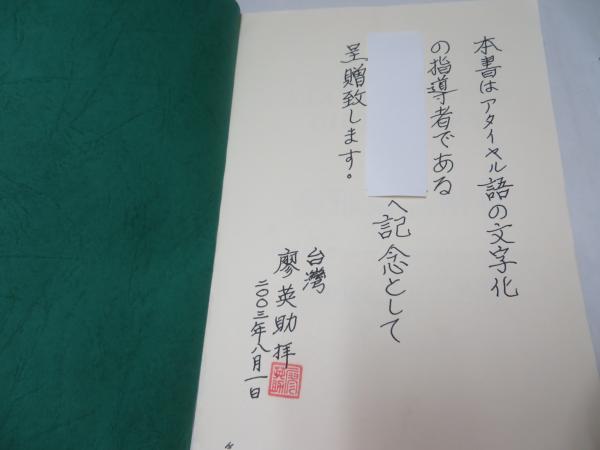 本書はアタイヤル語の文字化
の指導者である
へ記念として
呈贈致します。
台灣
廖英助拜
二〇〇三年八月一日